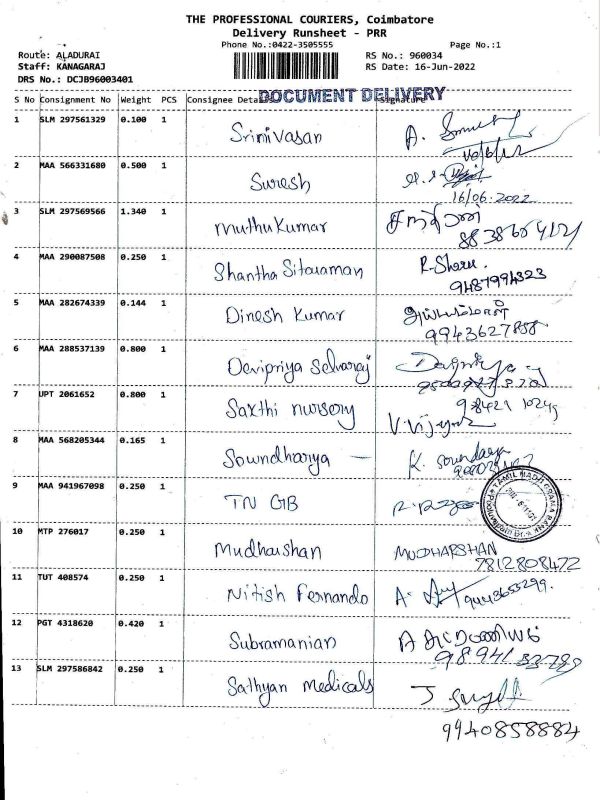 THE PROFESSIONAL COURIERS, Coimbatore
Delivery Runsheet - PRR
Phone No.:0422-3505555
Page No.:1
Route: ALADURAI
RS No.: 960034
Staff: KANAGARAJ
RS Date: 16-Jun-2022
DRS No.: DCJB96003401
DOCUMENT DELIVERY
S No Consignment No Weight PCS Consignee Details Signature
1 SLM 297561329 0.100 1 Srinivasan A.
16/6/22
2 MAA 566331680 0.500 1 Suresh
16/06.2022
3 SLM 297569566 1.340 1 MuthuKumar
4 MAA 290087508 0.250 1 Shantha Sitaraman
9487994323
5 MAA 282674339 0.144 1 Dinesh Kumar
9943627858
6 MAA 288537139 0.800 1 Devipriya Selvaraj
7 UPT 2061652 0.800 1 Sakthi nursery
8 MAA 568205344 0.165 1 Soundharya — K.
9 MAA 941967098 0.250 1 TN GB
TAMIL NADU GRAMA BANK
10 MTP 276017 0.250 1 Mudharshan MUDHARSHAN
7812808472
11 TUT 408574 0.250 1 Nitish Fernando A.
12 PGT 4318620 0.420 1 Subramanian
13 SLM 297586842 0.250 1 Sathyan Medicals J
9940858884